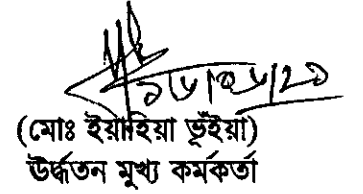 (মোঃ ইয়াহিয়া ভূইয়া)
ঊর্দ্ধতন মুখ্য কর্মকর্তা